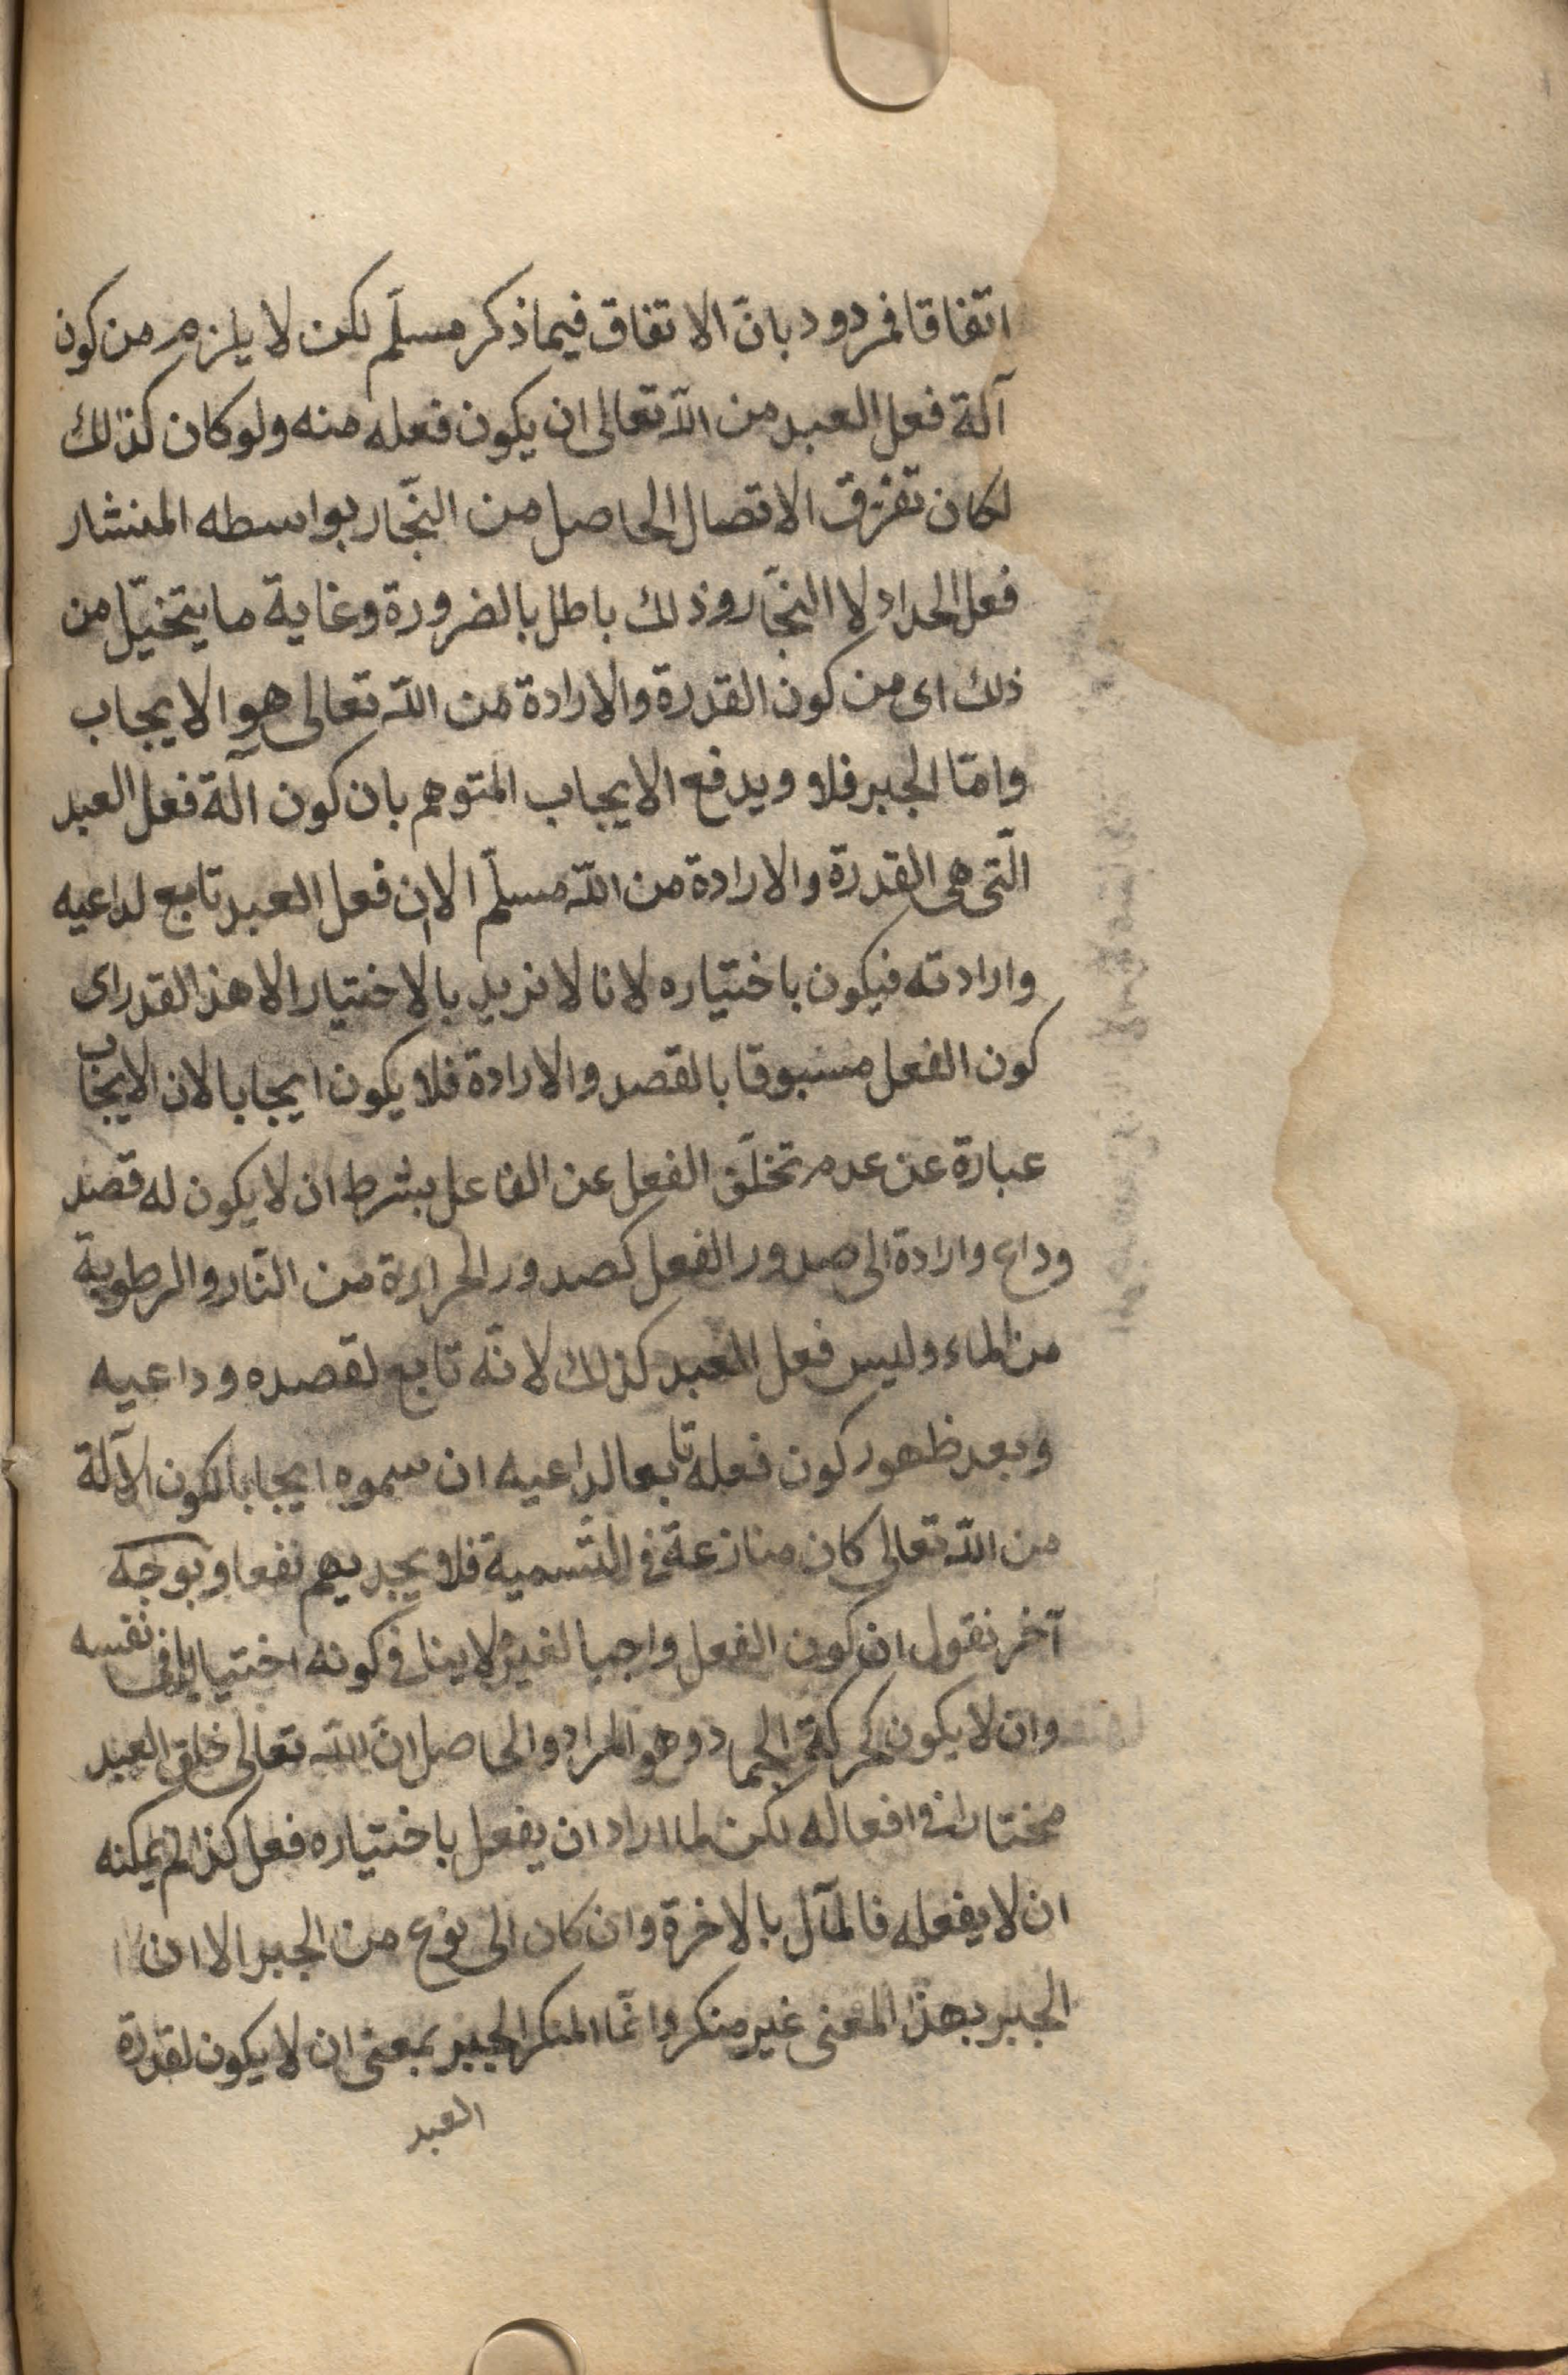 اتفاقا فمردود بانّ الاتفاق فيما ذكر مسلّم لكن لا يلزم من كون
آلة فعل العبد من اللّه تعالى ان يكون فعله منه ولو كان كذلك
لكان تفرّق الاتصال الحاصل من النجّار بواسطه المنشار
فعل الحداد لا النجّار وذلك باطل بالضرورة وغاية ما يتخيّل من
ذلك اى من كون القدرة والارادة من اللّه تعالى هو الايجاب
وامّا الجبر فلا ويدفع الايجاب المتوهم بان كون آلة فعل العبد
الّتى هى القدرة والارادة من اللّه مسلّم الا ان فعل العبد تابع لداعيه
وارادته فيكون باختياره لانا لا نريد بالاختيار الا هذا القدر اى
كون الفعل مسبوقا بالقصد والارادة فلا يكون ايجابا لان الايجاب
عبارة عن عدم تخلّف الفعل عن الفاعل بشرط ان لا يكون له قصد
وداع وارادة الى صدور الفعل كصدور الحرارة من النّار والرطوبة
من الماء وليس فعل العبد كذلك لانّه تابع لقصده وداعيه
وبعد ظهور كون فعله تابعا لداعيه ان سموه ايجابا لكون الآلة
من اللّه تعالى كان منازعة فى التّسمية فلا يجديهم نفعا وبوجه
آخر نقول ان كون الفعل واجبا لغيره لا ينافى كونه اختياريا فى نفسه
وان لا يكون كحركة الجماد وهو المراد والحاصل انّ اللّه تعالى خلق العبد
مختارا فى افعاله لكن لما اراد ان يفعل باختياره فعل كذا لم يمكنه
ان لا يفعله فالمآل بالاخرة وان كان الى نوع من الجبر الا ان
الجبر بهذا المعنى غير منكر وانّما المنكر الجبر بمعنى ان لا يكون لقدرة
العبد